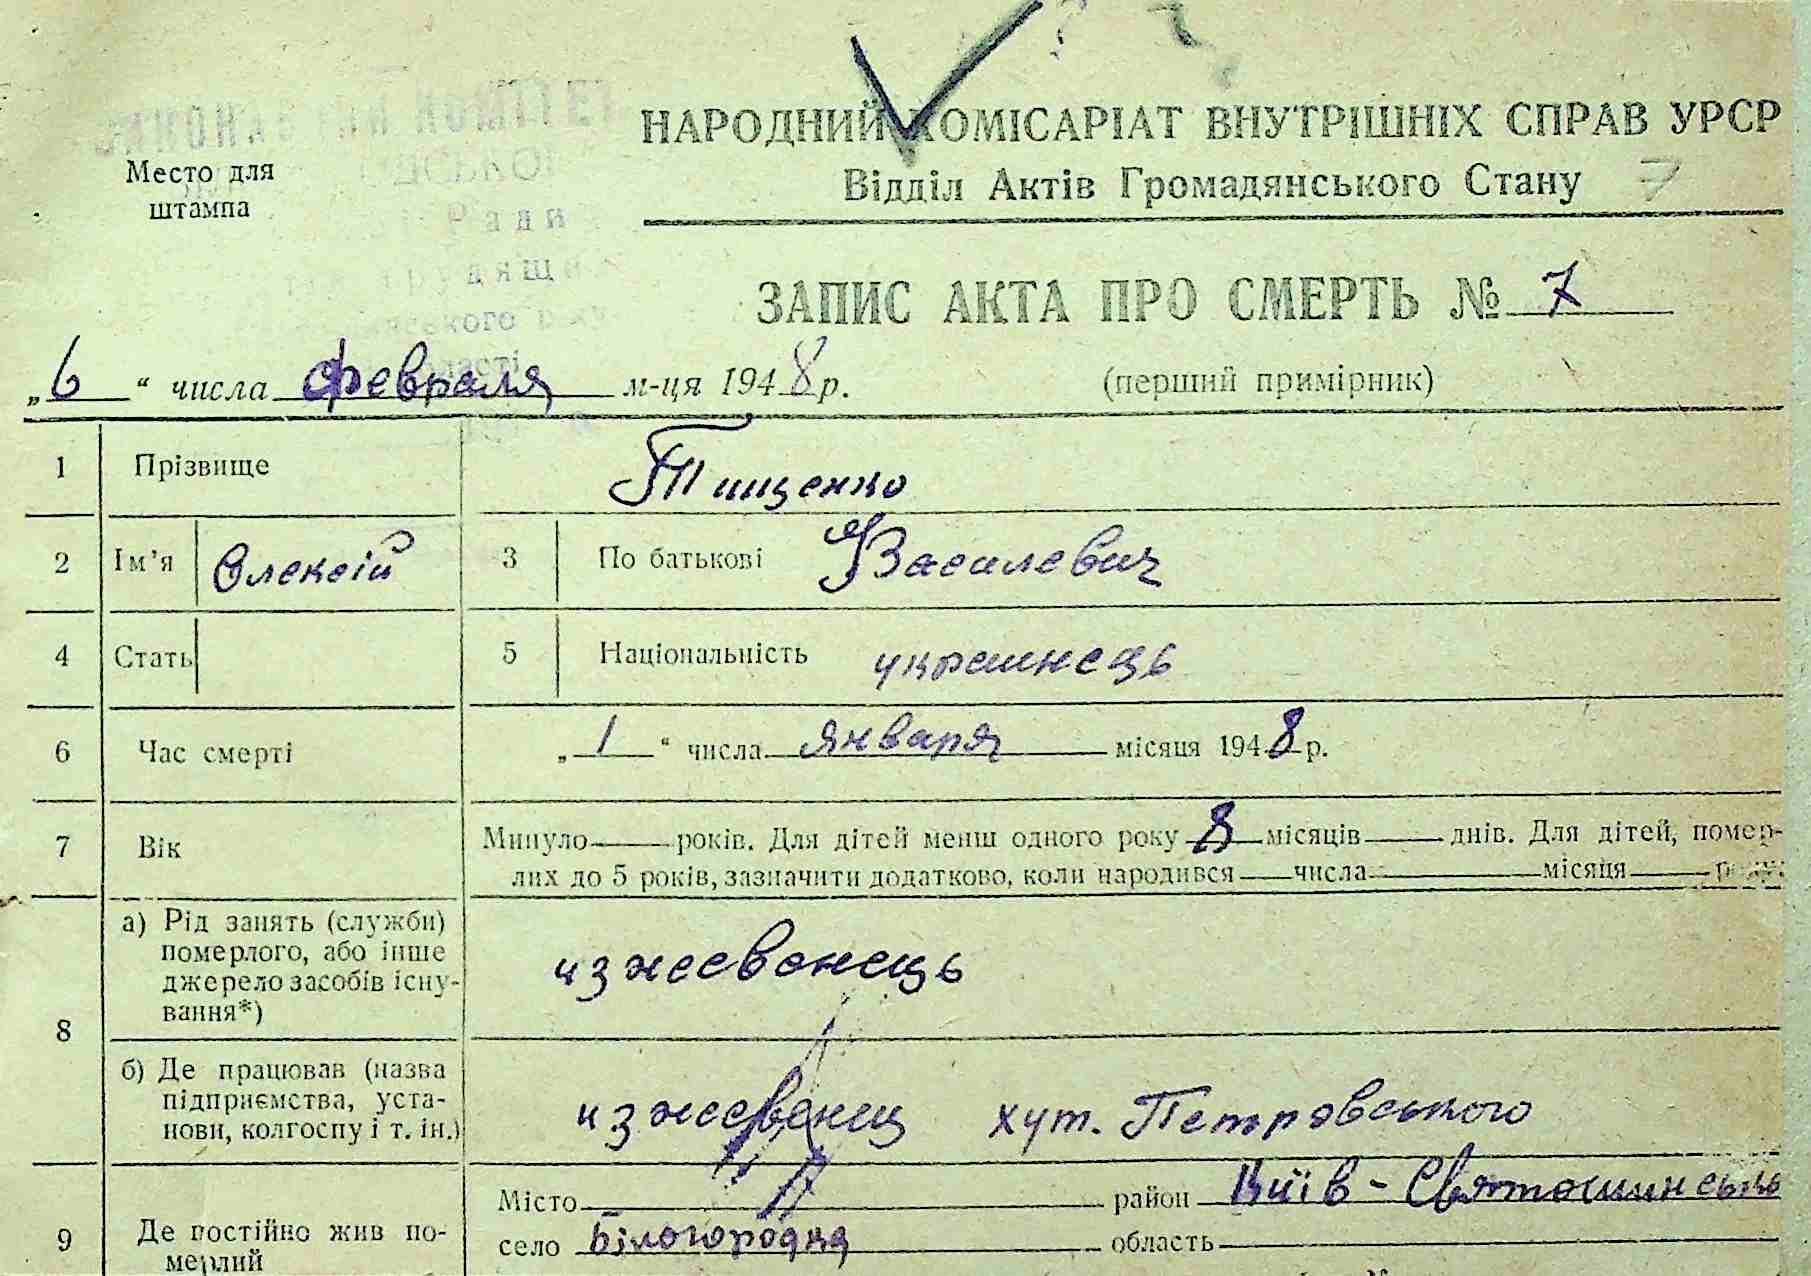 НАРОДНИЙ КОМІСАРІАТ ВНУТРІШНІХ СПРАВ УРСР
Место для
штампа
Відділ Актів Громадянського Стану 7
ЗАПИС АКТА ПРО СМЕРТЬ № 7
„6“ числа февраля м-ця 1948 р. (перший примірник)
1 Прізвище Тищенко
2 Ім'я Олексій 3 По батькові Василевич
4 Стать 5 Національність українець
6 Час смерті „1“ числа января місяця 1948 р.
7 Вік Минуло ___ років. Для дітей менш одного року 8 місяців ___ днів. Для дітей, помер-
лих до 5 років, зазначити додатково, коли народився ___ числа ___ місяця ___ року
8 а) Рід занять (служби)
померлого, або інше
джерело засобів існу-
вання*)
б) Де працював (назва
підприємства, уста-
нови, колгоспу і т. ін.)
хут. Петровського
9 Де постійно жив по-
мерлий
Місто ___ район Київ-Святошинськ
село Білогородка область